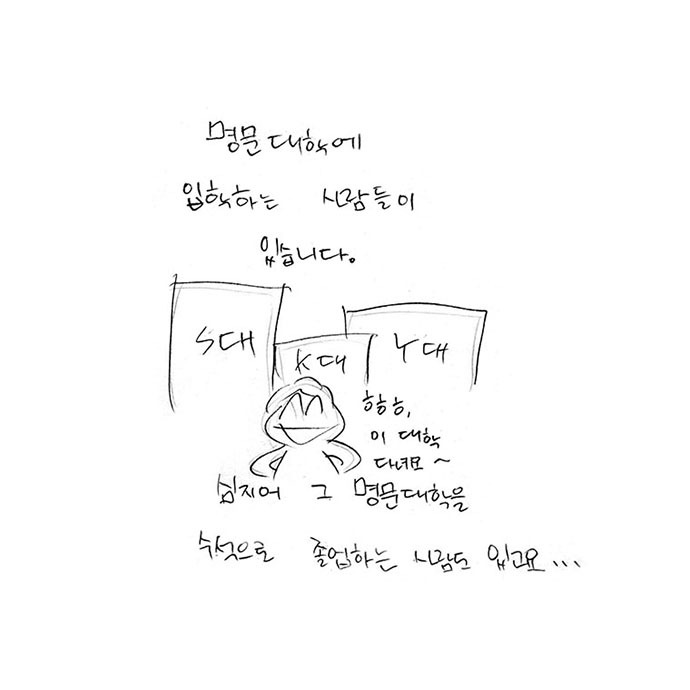 명문대학에
입학하는 사람들이
있습니다.
S대
K대
Y대
핳핳,
이 대학
다녀요~
심지어 그 명문대학을
수석으로 졸업하는 사람도 있고요...